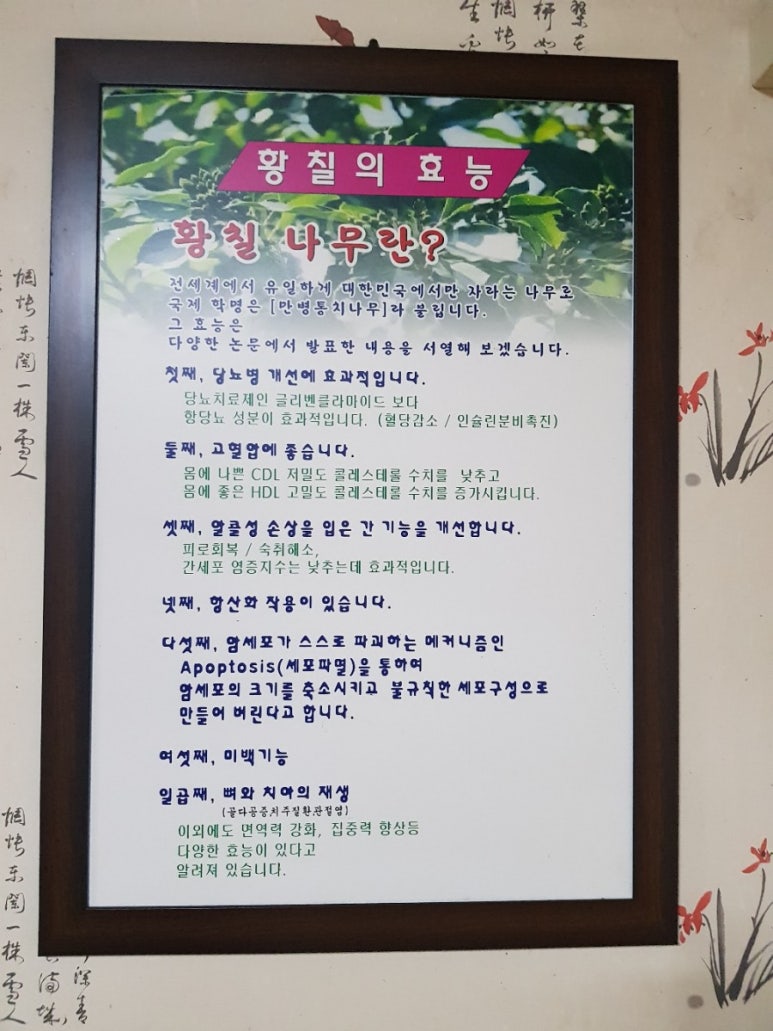 황칠의 효능
황칠 나무란?
전세계에서 유일하게 대한민국에서만 자라는 나무로
국제 학명은 [만병통치나무]라 불립니다.
그 효능은
다양한 논문에서 발표한 내용을 서열해 보겠습니다.
첫째, 당뇨병 개선에 효과적입니다.
당뇨치료제인 글리벤클라마이드 보다
항당뇨 성분이 효과적입니다. (혈당감소 / 인슐린분비촉진)
둘째, 고혈압에 좋습니다.
몸에 나쁜 CDL 저밀도 콜레스테롤 수치를 낮추고
몸에 좋은 HDL 고밀도 콜레스테롤 수치를 증가시킵니다.
셋째, 알콜성 손상을 입은 간 기능을 개선합니다.
피로회복 / 숙취해소,
간세포 염증지수는 낮추는데 효과적입니다.
넷째, 항산화 작용이 있습니다.
다섯째, 암세포가 스스로 파괴하는 메커니즘인
Apoptosis(세포파멸)을 통하여
암세포의 크기를 축소시키고 불규칙한 세포구성으로
만들어 버린다고 합니다.
여섯째, 미백기능
일곱째, 뼈와 치아의 재생
(골다공증치주질환관절염)
이외에도 면역력 강화, 집중력 향상등
다양한 효능이 있다고
알려져 있습니다.